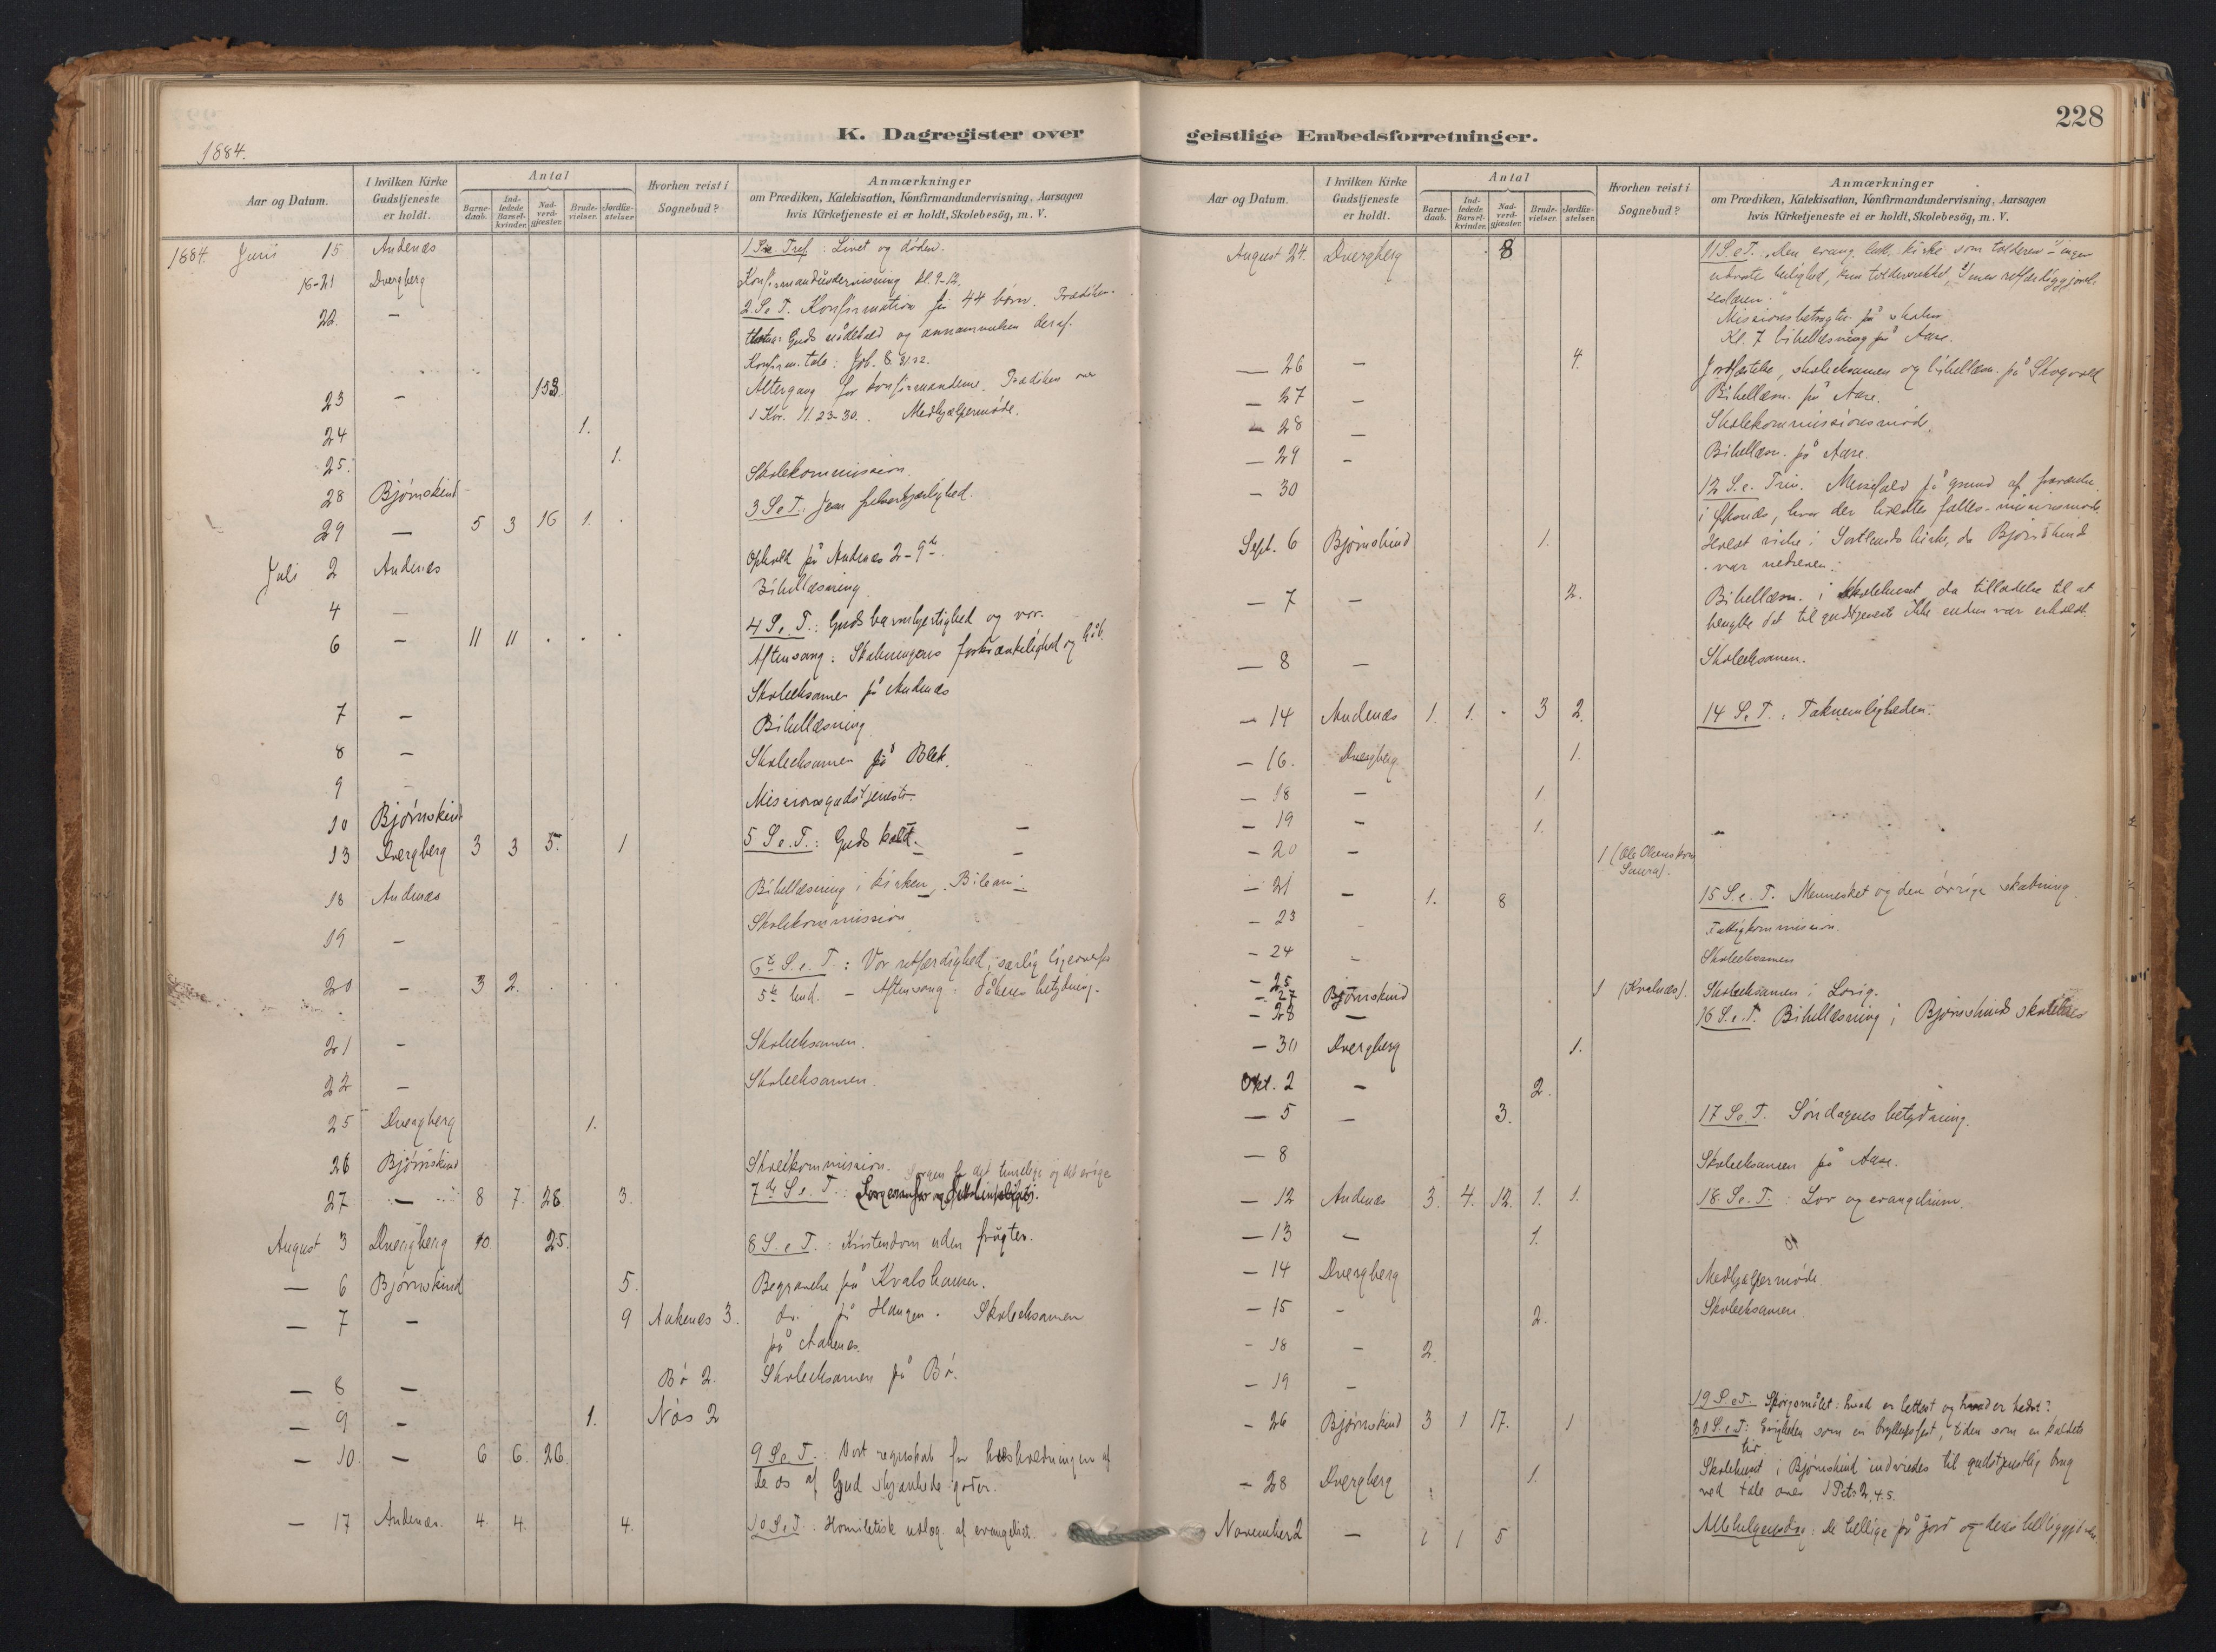 228
K. Dagregister over geistlige Embedsforretninger.
1884.
Aar og Datum.
I hvilken Kirke Gudstjeneste er holdt.
Antal
Barne-daab.
Ind-ledede Barsel-kvinder.
Nad-verd-gjæster.
Brude-vielser.
Jordfæ-stelser
Hvorhen reist i Sognebud?
Anmærkninger
om Prædiken, Katekisation, Konfirmandundervisning, Aarsagen
hvis Kirketjeneste ei er holdt, Skolebesög, m. V.
1884. Juni 15 Andenæs 1 S. e. Tref: Livet og døden.
16-21 Dvergberg Konfirmandundervisning kl. 9-12.
22. — 2. S. e. T. Konfirmation for 44 børn. Prædiken
Guds nådebud og annammelsen deraf.
Konfirm. tale: Joh. 8. 31/32.
23 — 153 Altergang for konfirmanderne. Prædiken over
1 Kor. 11.23-30. Medhjælpermøde.
24 1.
25. 1. Skolekommission.
28 Bjørnskind
29 — 5 3 16 1. 3 S e T.: Jesu frelserkjærlighed.
Juli 2 Andenæs Ophold på Andenæs 2-9de.
4 — Bibellæsning.
6 — 11 11 . . . 4 S. e. T.: Guds barmhjertighed og vor.
Aftensang: Skabningens forkrænkelighed og håb.
7 — Skoleeksamen på Andenæs
8 — Bibellæsning.
9 Skoleeksamen på Blek.
10 Bjørnskind Missionsgudstjeneste.
13 Dvergberg 3 3 5. 1 5 S. e. T.: Guds kald.
18 Andenæs Bibellæsning i kirken, Bileam.
19 — Skolekommission
20 — 3 2. . . . 6te S. e. T.: Vor retfærdighed, særlig ligeoverfor
5te bud. — Aftensang: Dåbens betydning.
21 — Skoleeksamen.
22 — Skoleeksamen.
25 Dvergberg 1.
26 Bjørnskind Skolekommission. Sorgen for det timelige og det evige
27 — 8 7. 28 3. 7de S. e. T.:
August 3 Dvergberg 10 25. 8 S. e T.: Kristendom uden frugter.
— 6 Bjørnskind 5. Begravelse på Kvalshausen.
— 7 — 9 Aakenes 3. do. på Haugen. Skoleeksamen
på Aakenes.
— 8 — Bø 2. Skoleeksamen på Bø.
— 9 — 1. Nøs 2
— 10. — 6 6. 26. 9 S. e. T.: Vort regnskab for husholdningen af
de os af Gud skjænkede goder.
— 17 Andenæs. 4. 4. 4. 10 S. e T.: Homiletisk udlæg. af evangeliet.
Aar og Datum.
I hvilken Kirke Gudstjeneste er holdt.
Antal
Barne-daab.
Ind-ledede Barsel-kvinder.
Nad-verd-gjæster.
Brude-vielser.
Jordfæ-stelser.
Hvorhen reist i Sognebud?
Anmærkninger
om Prædiken, Katekisation, Konfirmandundervisning, Aarsagen
hvis Kirketjeneste ei er holdt, Skolebesög, m. V.
August 24. Dvergberg 8 11 S. e T. "Den evang. luth. kirke som tolderen": ingen
Missionsbetragtn. på skolen
Kl. 7 bibellæsning på Aase.
— 26 — 4. Jordfæstelse, skoleeksamen og bibellæsn. på Skogvold
— 27 — Bibellæsn. på Aase.
— 28 — Skolekommissionsmøde.
— 29 — Bibellæsn. på Aase.
— 30 12 S. e. Trin. Messefald på grund af fravær
hvor der holdtes fælles-missionsmøde.
Sept. 6 Bjørnskind 1. Holdt vielse i Sortlands kirke, da Bjørnskind
var nedreven.
— 7 — 2. Bibellæsn. i skolehuset da tilladelse til at
benytte det til gudstjeneste ikke endnu var erholdt.
— 8 — Skoleeksamen.
— 14 Andenæs 1. 1. . 3 2. 14 S. e T.: Taknemligheden.
— 16. Dvergberg. 1.
— 18 — 1
— 19 — 1.
— 20 — 1 (Ole Olsens kone
Saura).
— 21 — 1. 8 15 S. e. T. Mennesket og den øvrige skabning.
— 23 Fattigkommission.
— 24 Skoleeksamen
— 25
— 27 Bjørnskind 1 (Kvalnæs). Skoleeksamen i Lovig.
— 28 — 16 S. e. T. Bibellæsning i Bjørnskinds skolehus
— 30 Dvergberg 1.
Okt. 2 — 2.
— 5 — 3. 17 S. e. T. Søndagens betydning.
— 8 Skoleeksamen på Aase.
— 12 Andenæs 3. 4. 12. 1. 1. 18. S. e. T.: Lov og evangelium.
— 13 — 1.
— 14 Dvergberg Medhjælpermøde.
— 15 — 2. Skoleeksamen
— 18 — 2.
— 19 — 19 S. e T. Spørgsmålet: hvad er lettest og hvad er bedst?
— 26 Bjørnskind 3 1 17. 1 20 S. e T: Evigheden som en bryllupsfest, tiden som en kaldets
tid
Skolehuset i Bjørnskind indviedes til gudstjenstlig brug
ved tale over 1 Pet. 2, 4.5.
— 28 Dvergberg 1.
November 2 — 1 1 5 Allehelgensdag: De hellige på jord og deres helliggjørelse